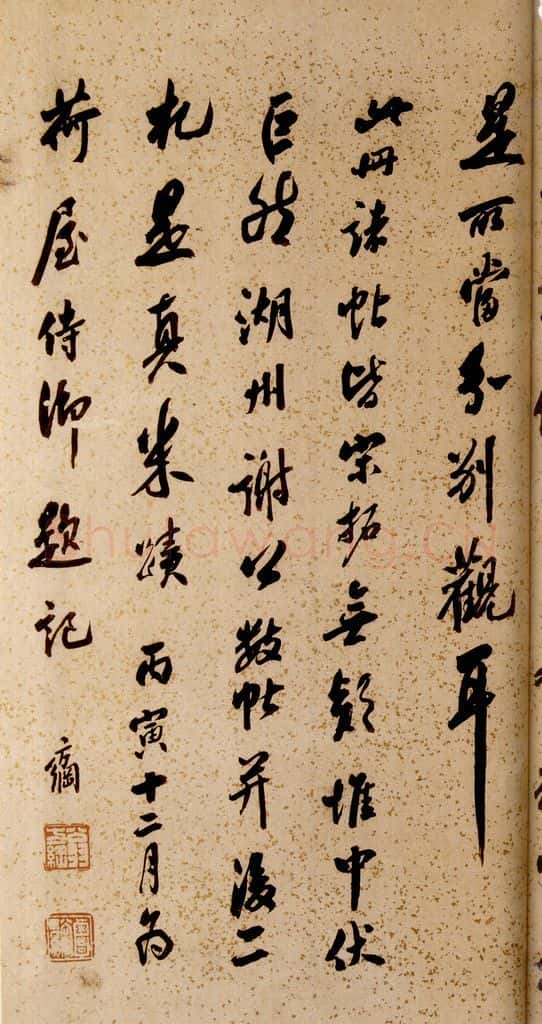 是所當分别觀耳
此冊諸帖皆宋拓無疑惟中伏
巨然湖州謝公數帖并後二
札是真米蹟 丙寅十二月為
荷屋侍御題記 方綱
shufawang.cn